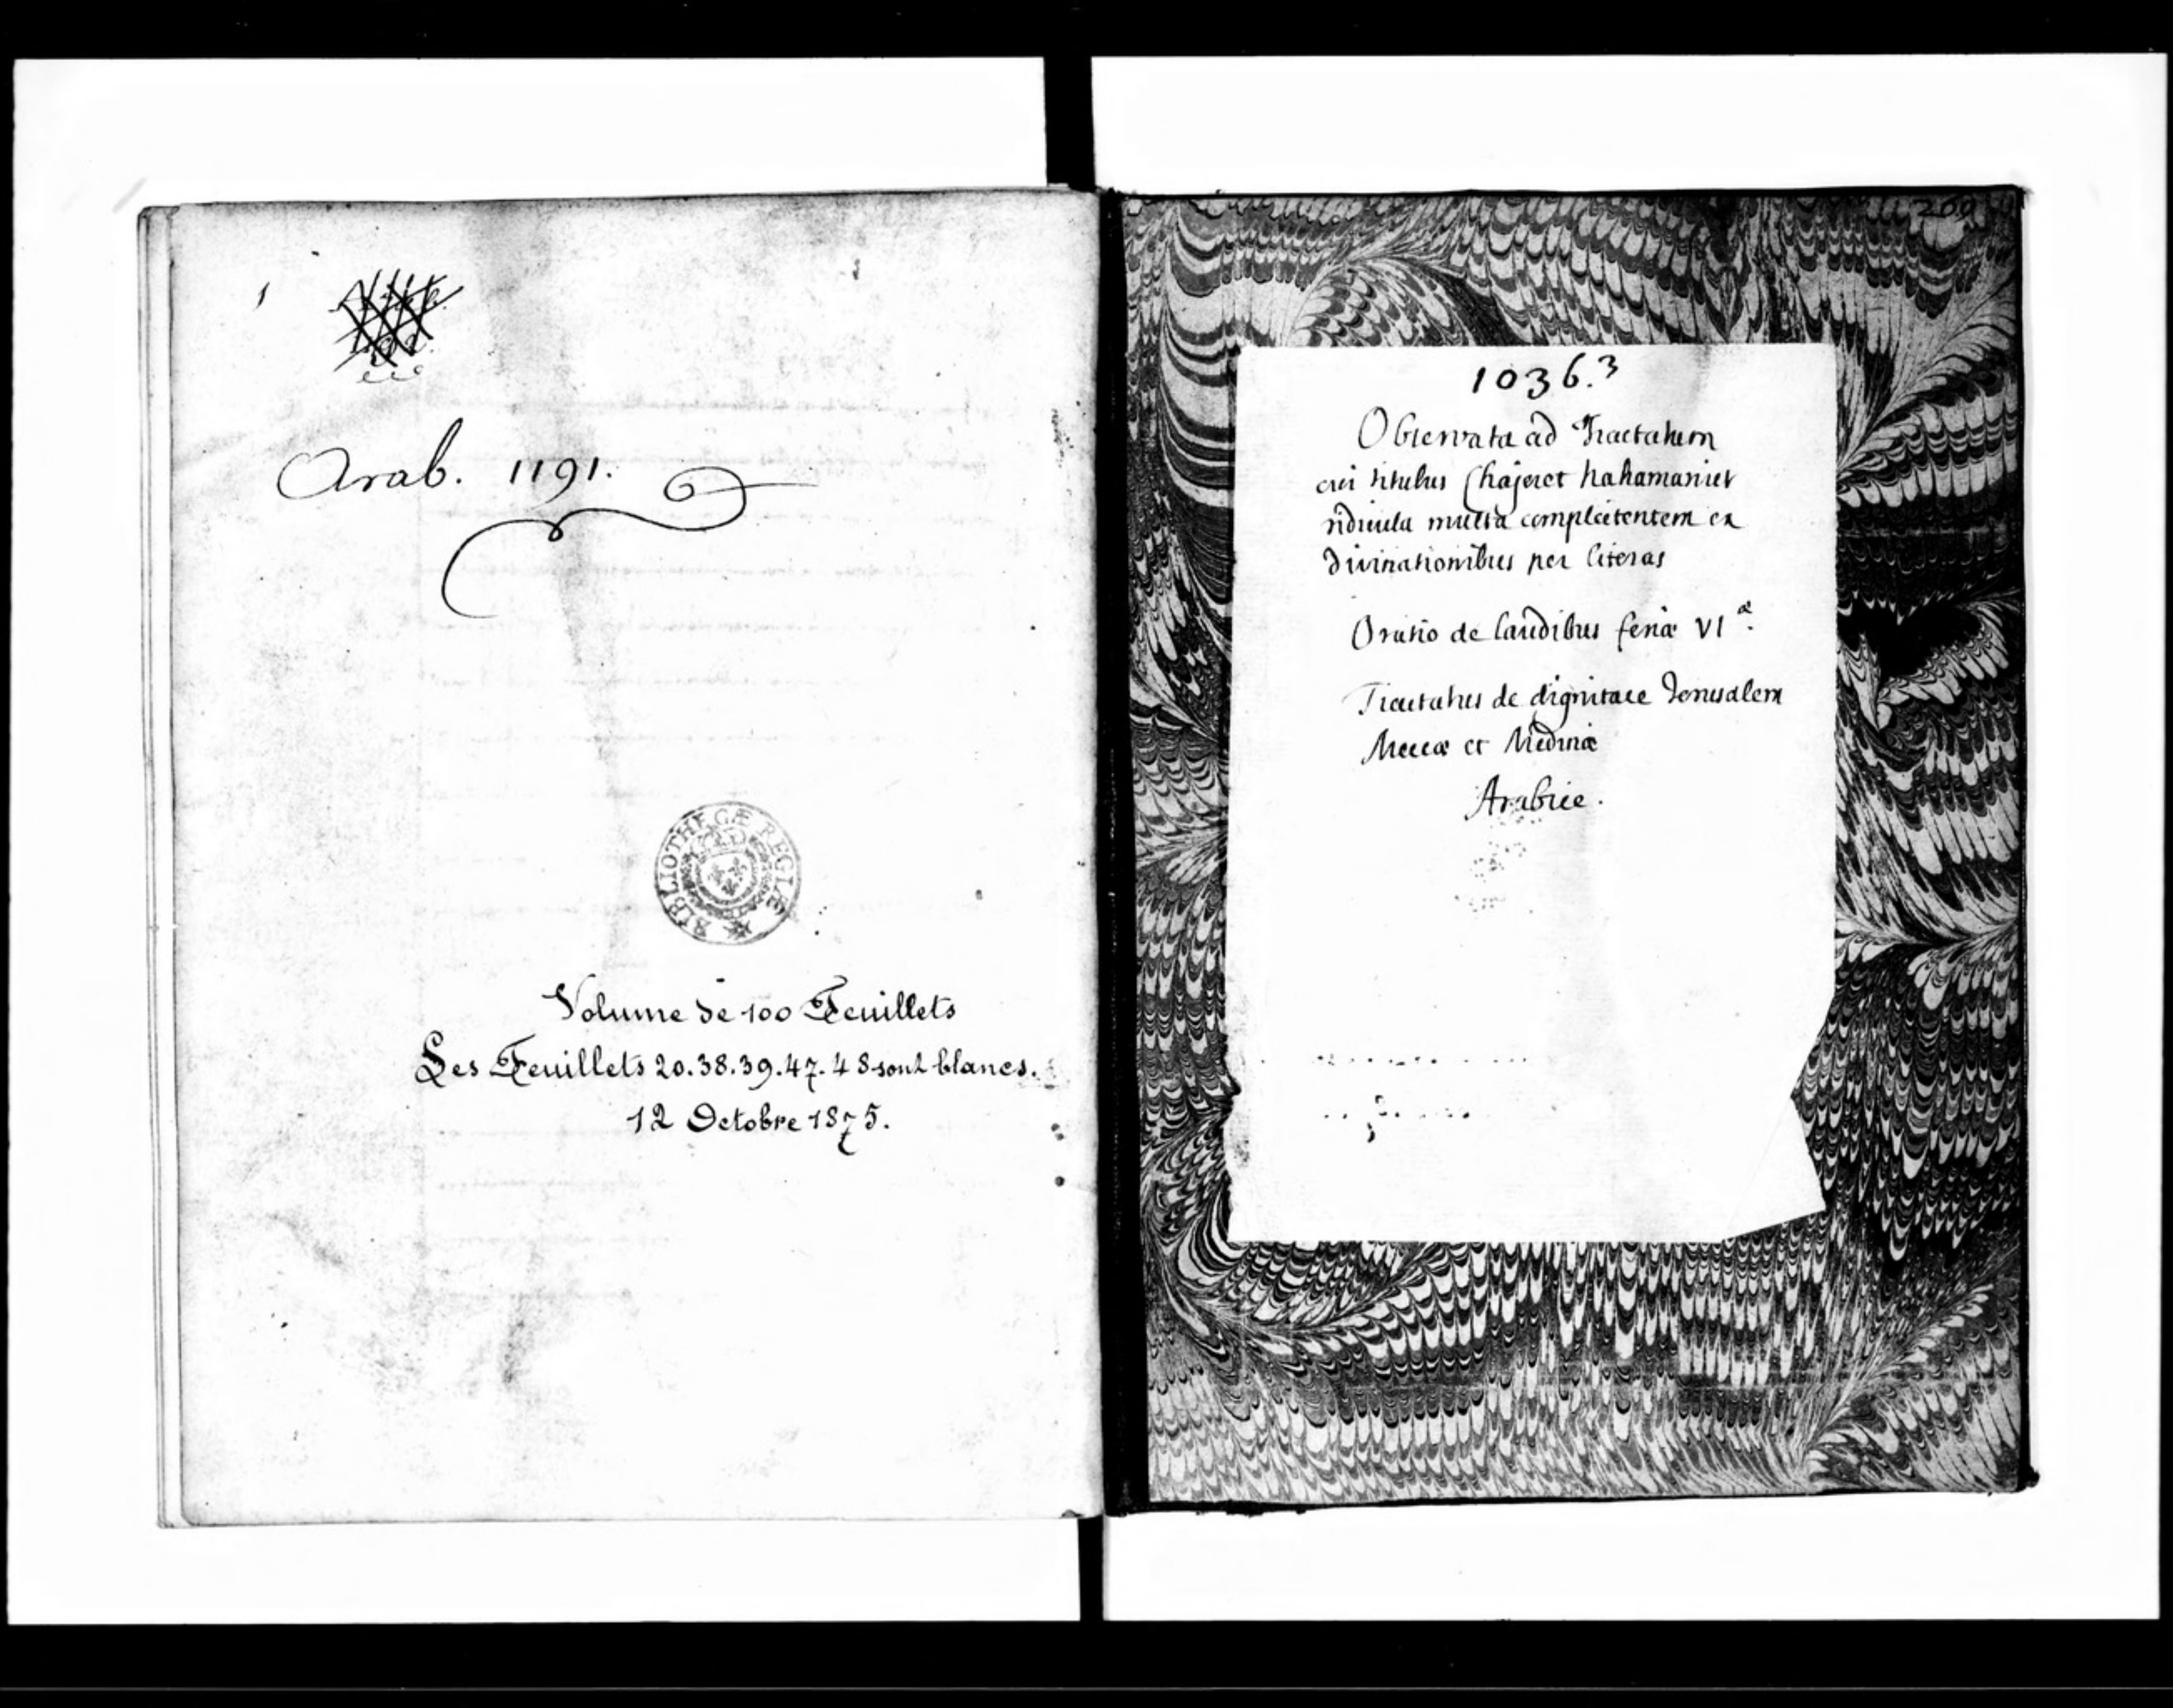 Arab. 1191.
BIBLIOTHECÆ REGIÆ
Volume de 100 Feuillets
Les Feuillets 20.38.39.47.48 sont blancs.
12 Octobre 1875.
1036.3
Observata ad Tractatum
cui titulus Chajeret hahamaniet
ridicula multa complectentem ex
divinationibus per literas
Oratio de laudibus feriæ VIæ.
Tractatus de dignitate Jerusalem
Meccæ et Medinæ
Arabice.